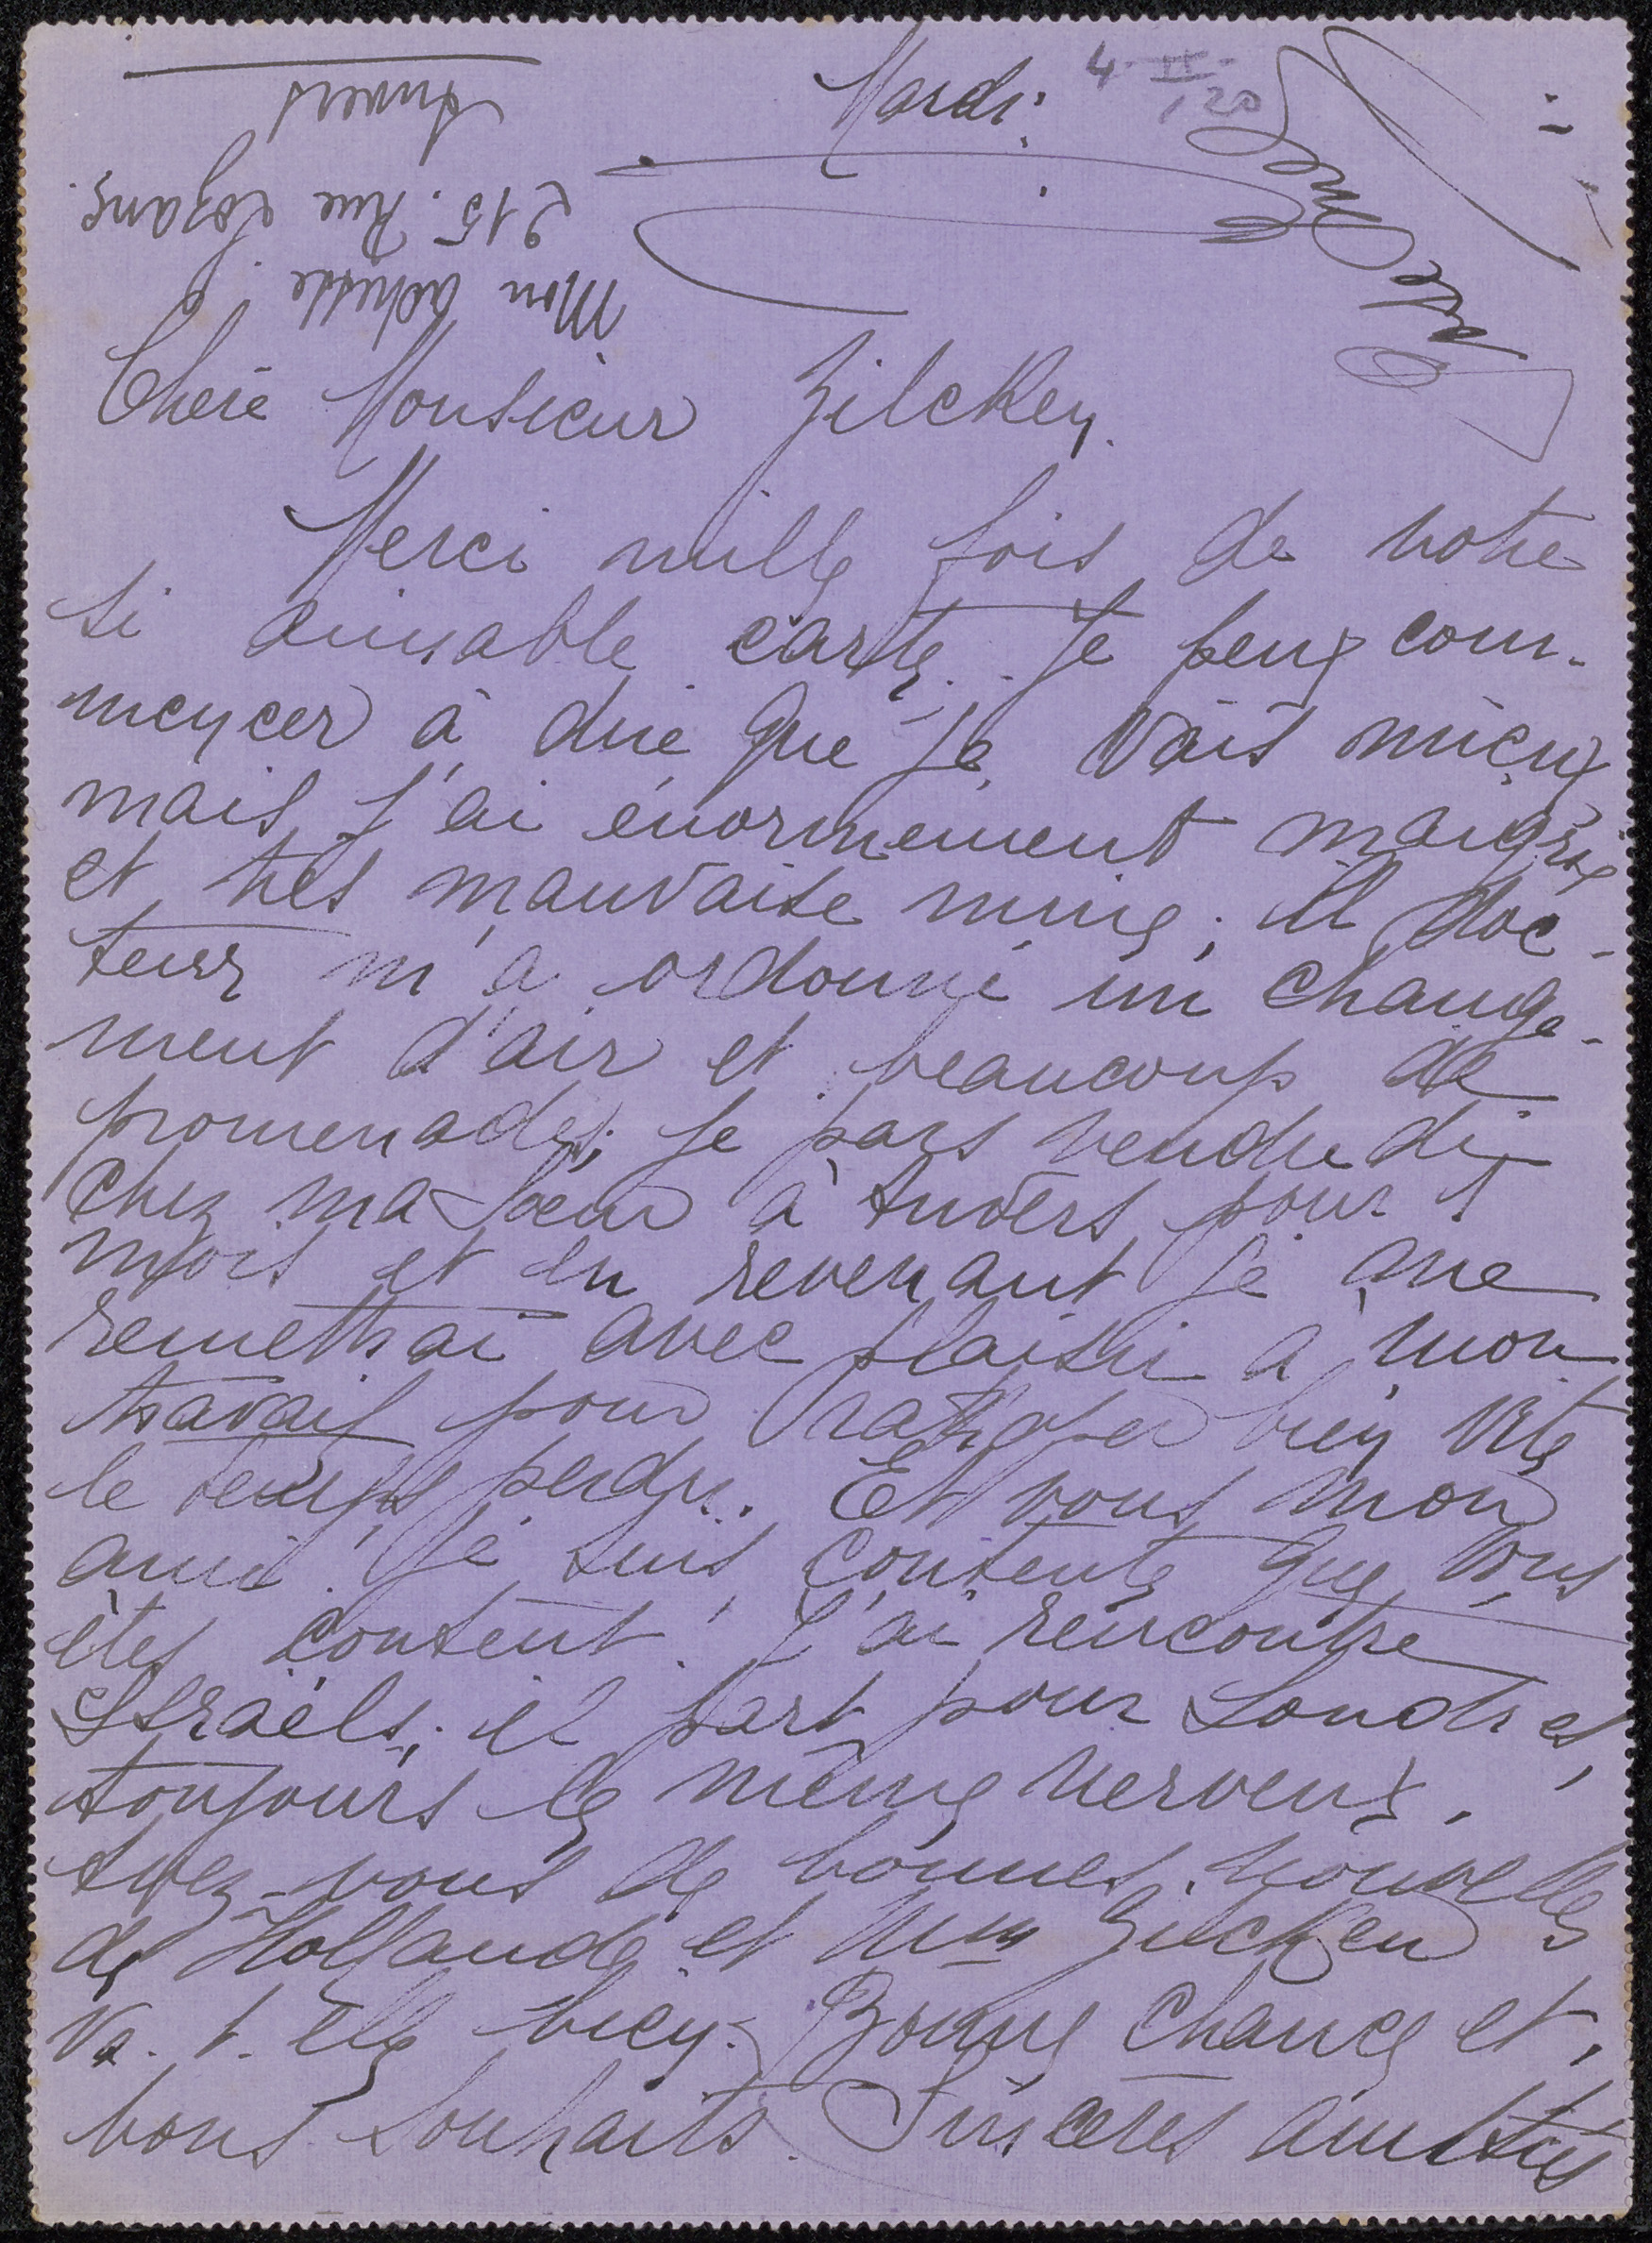 Mardi.
4 II. 20
Mon adresse
215. Rue Lozane.
Anvers
Cheré Monsieur Zilcken.
Merci mille fois de votre
si aimable carte. Je peux com-
mencer à dire que je vais mieux
mais j'ai énormement maigrie
et très mauvaise mine; le doc-
teur m'a ordonné un change-
ment d'air et beaucoup de
promenades; je pars vendredi
chez ma soeur à Anvers pour 1
mois et en revenant je me
remettrai avec plaisir à mon
travail pour rattraper bien vite
le temps perdu. Et vous mon
ami! Je suis contente que vous
êtes content. J'ai rencontre
Israëls; il part pour Londres,
toujours le même nerveux.
Avez-vous de bonnes nouvelles
de Hollande et Mme Zilcken
va. t. elle bien. Bonne chance et
bons souhaits. Sincères amitiés